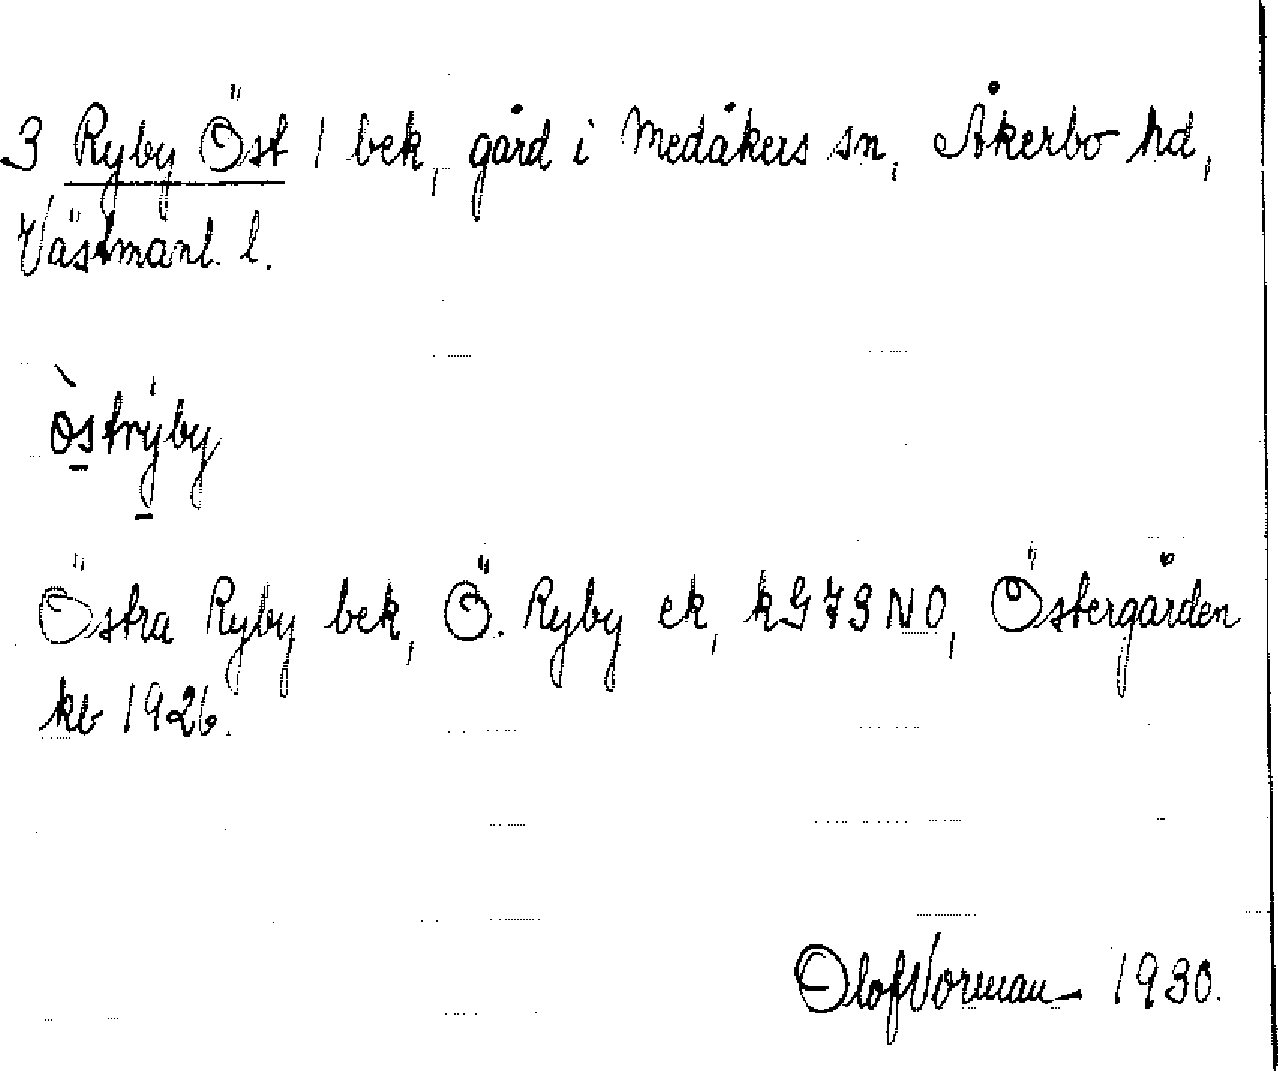 3 Ryby Öst / bek, gård i Medåkers sn, Åkerbo hd,
Västmanl. l.
òstrýby
Östra Ryby bek, Ö. Ryby ek, kG 73 NO, Östergården
kb 1926.
Olof Vorman 1930.